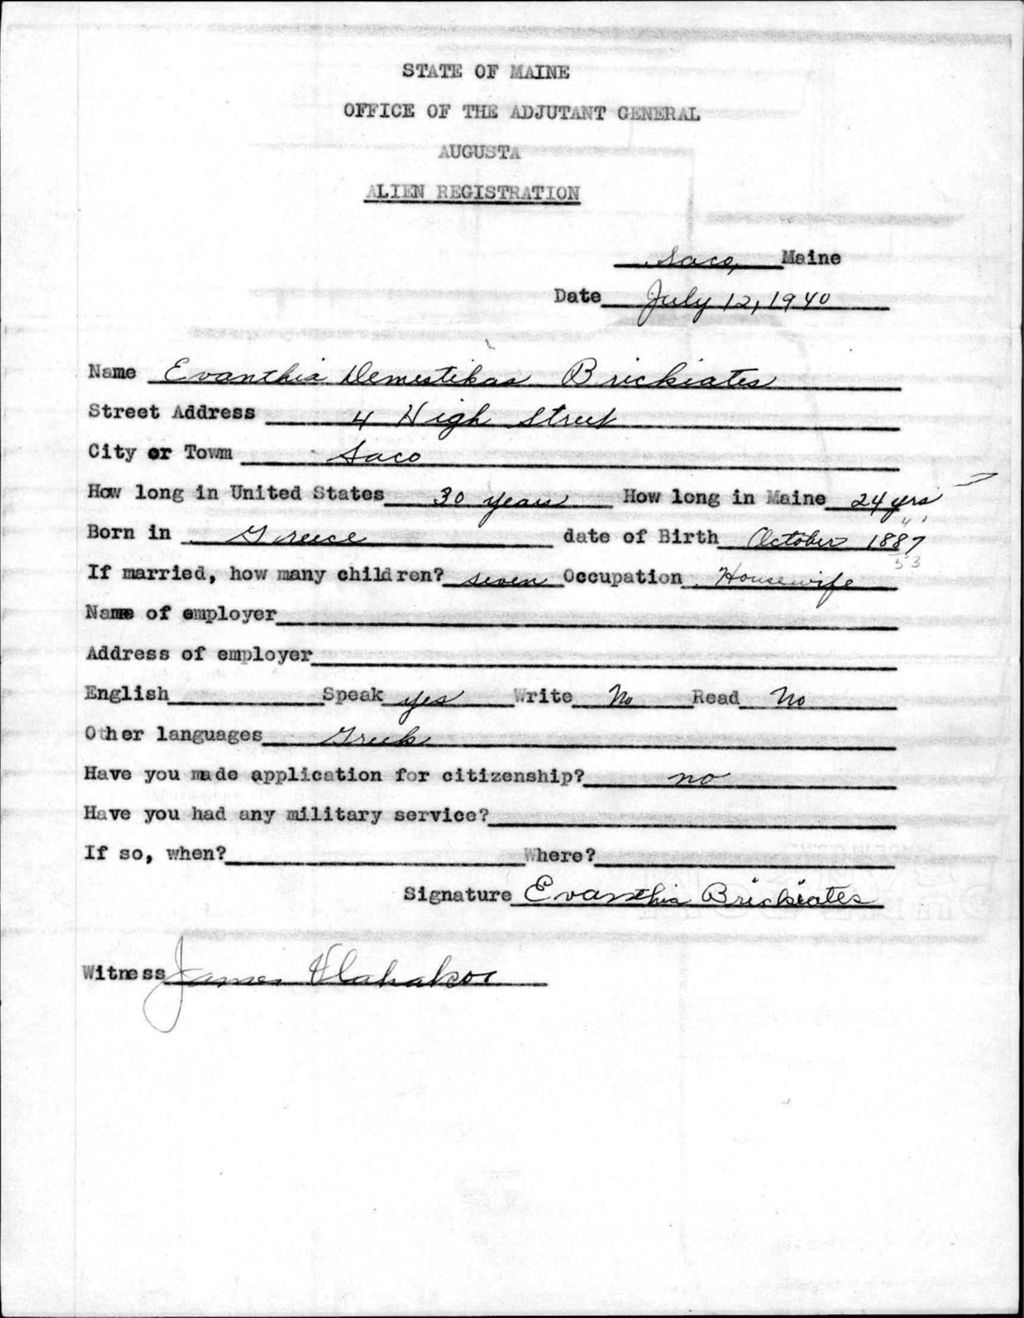 STATE OF MAINE
OFFICE OF THE ADJUTANT GENERAL
AUGUSTA
ALIEN REGISTRATION
Saco, Maine
Date July 12, 1940
Name Evanthia Demestikas Brickiates
Street Address 4 High Street
City or Town Saco
How long in United States 30 years How long in Maine 24 yrs
Born in Greece date of Birth October 1887
53
If married, how many children? seven Occupation Housewife
Name of employer
Address of employer
English Speak yes Write No Read No
Other languages Greek
Have you made application for citizenship? no
Have you had any military service?
If so, when? Where?
Signature Evanthia Brickiates
Witness James Vlahakos